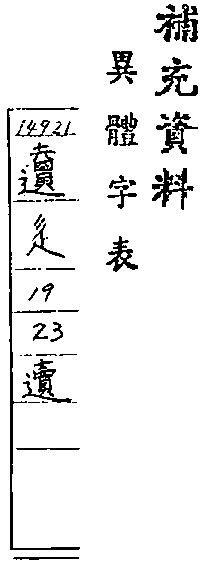 補充資料
異體字表
14921
辵
19
23